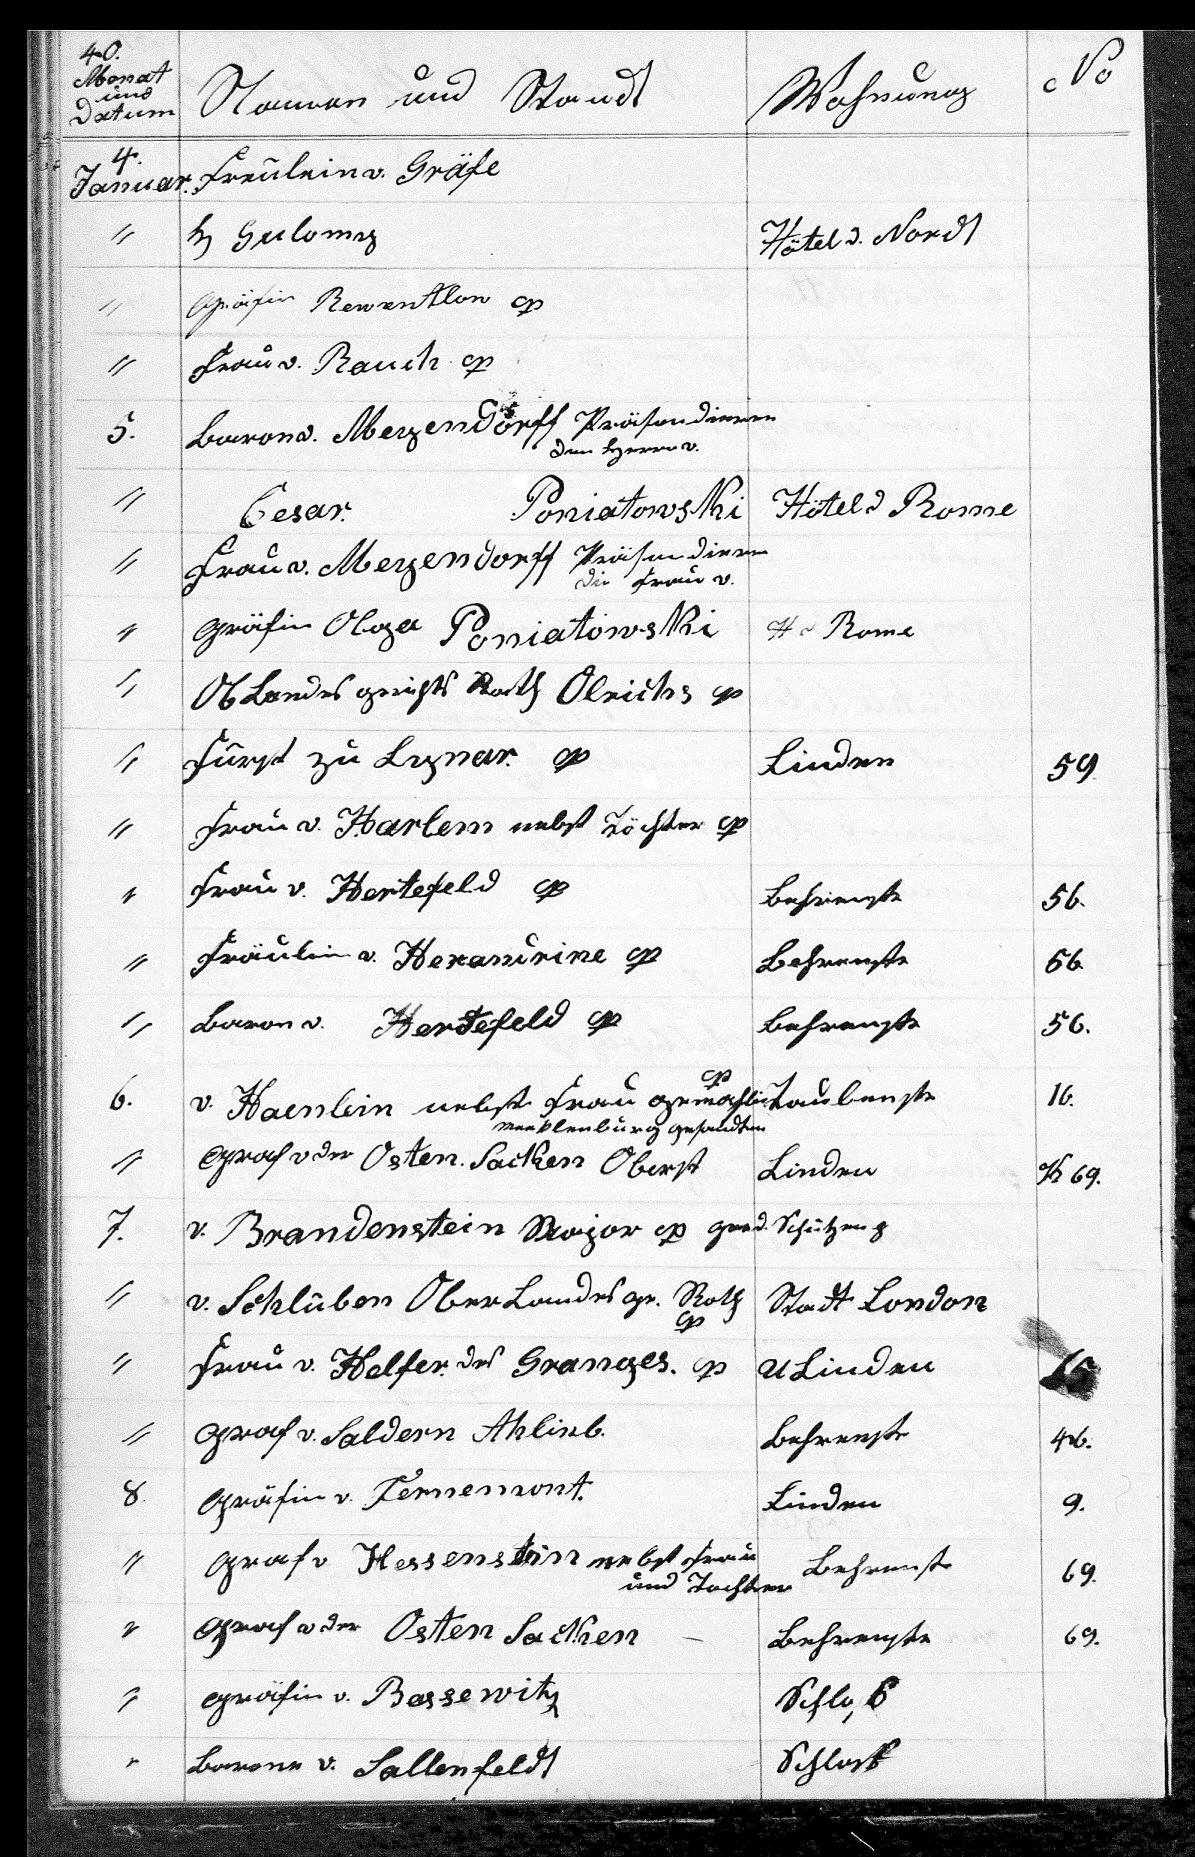 40.
Monat
und
Datum Namen und Stand Wohnung No
4.
Januar. Freülein v. Gräfe
" H Gulomy Hôtel d. Nord
" Gräfin Reventlow cp
" Frau v. Rauch cp
5. Baron v. Meyendorff Präsendieren
den Herrn v.
" Cesar. Poniatowski Hôtel d Rome
" Frau v. Meyendorff Präsendieren
die Frau v.
" Gräfin Olga Poniatowski H d Rome
" Ob Landes gerichts Rath Olrichs cp
" Fürst zu Lynar. cp Linden 59
" Frau v. Harlem nebst Töchter cp
" Frau v. Hertefeld cp Behrenstr 56.
" Fräulein v. cp Behrenstr 56
" Baron v. Hertefeld cp Behrenstr 56.
cp
6. v. Haenlein nebst Frau gemahlin Taubenstr 16.
Mecklenburg gesandten
" Graf v der Osten. Sacken Oberst Linden 69.
7. v. Brandenstein Major cp gard. Schützen
" v. Schlüben Ober Landes ge. Rath Stadt London
cp
" Frau v. Helfer. des Granges. cp U Linden 15
" Graf v. Saldern Ahlimb. Behrenstr 46.
8. Gräfin v. Fernemont. Linden 9.
" Graf v Hessenstein nebst Frau
und Tochter Behrenstr 69.
" Graf v der Osten Sacken – Behrenstr 69.
" Gräfin v. Bassewitz Schloß
" Barone v. Sallenfeldt Schloß